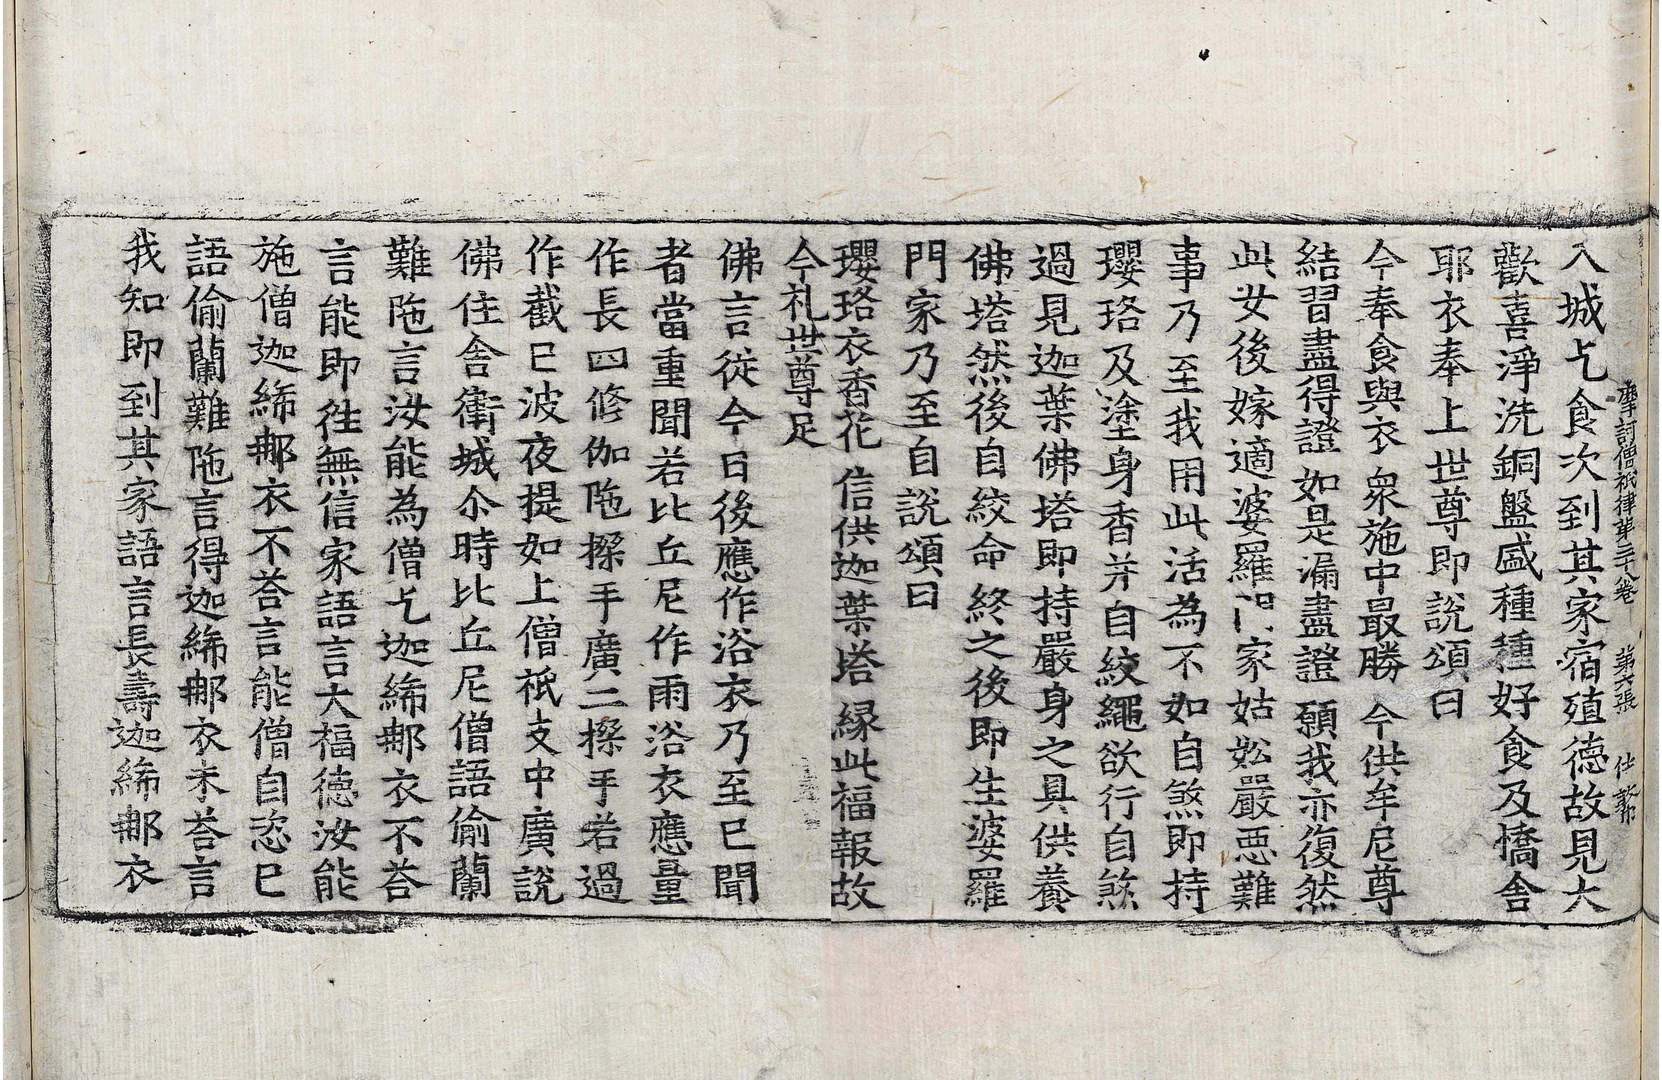 摩訶僧祇律第三十八卷 第六張 仕
入城乞食次到其家宿殖德故見大
歡喜淨洗銅盤盛種種好食及憍舍
耶衣奉上世尊即說頌曰
今奉食與衣 衆施中最勝 今供牟尼尊
結習盡得證 如是漏盡證 願我亦復然
此女後嫁適婆羅門家姑妐嚴惡難
事乃至我用此活為不如自煞即持
瓔珞及塗身香并自絞繩欲行自煞
過見迦葉佛塔即持嚴身之具供養
佛塔然後自絞命終之後即生婆羅
門家乃至自說頌曰
瓔珞衣香花 信供迦葉塔 縁此福報故
今礼世尊足
佛言從今日後應作浴衣乃至已聞
者當重聞若比丘尼作雨浴衣應量
作長四修伽陁搩手廣二搩手若過
作截已波夜提如上僧祇支中廣說
佛住舍衛城尒時比丘尼僧語偷蘭
難陁言汝能為僧乞迦絺那衣不荅
言能即往無信家語言大福德汝能
施僧迦絺那衣不荅言能僧自恣已
語偷蘭難陁言得迦絺那衣未荅言
我知即到其家語言長壽迦絺那衣